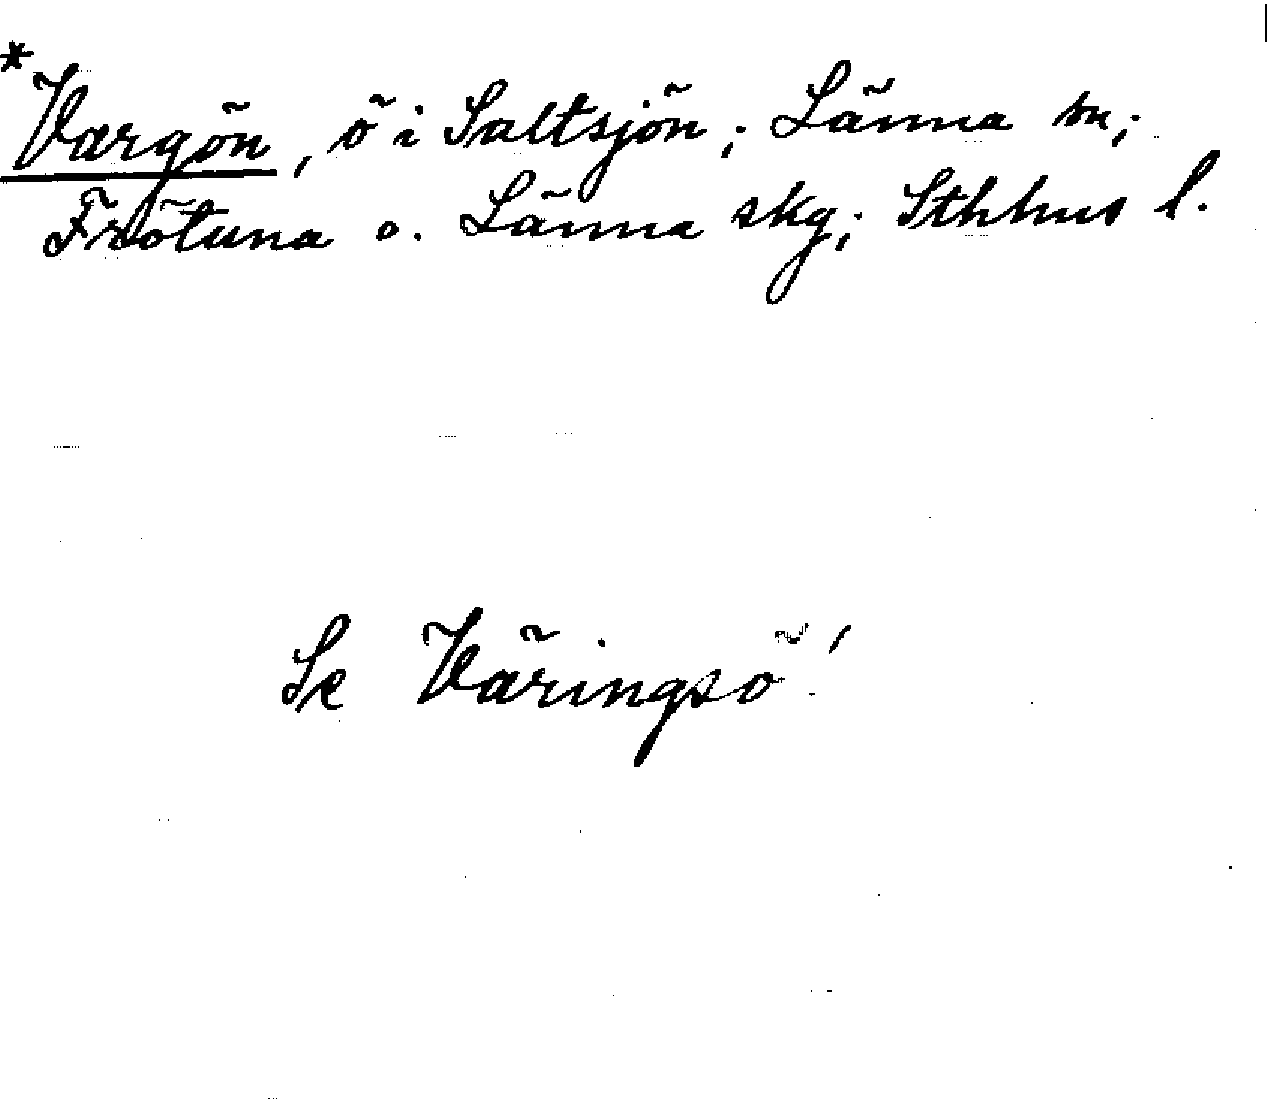 *Vargön, ö i Saltsjön; Länna sn;
Frötuna o. Länna skg; Sthhus l.
Se Väringsö!